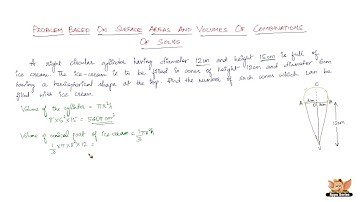 Problem Based On Surface Areas And Volumes Of Combinations
Of Solids
A right circular cylinder having diameter 12cm and height 15cm is full of
ice cream. The ice-cream is to be filled in cones of height 12cm and diameter 6cm
having a hemispherical shape at the top. Find the number of such cones which can be
filled with ice cream.
Volume of the cylinder = πr²h
π×6²×15 = 540π cm³
Volume of conical part of ice cream = 1/3 πr²h
1/3 × π×3²×12 =
12cm